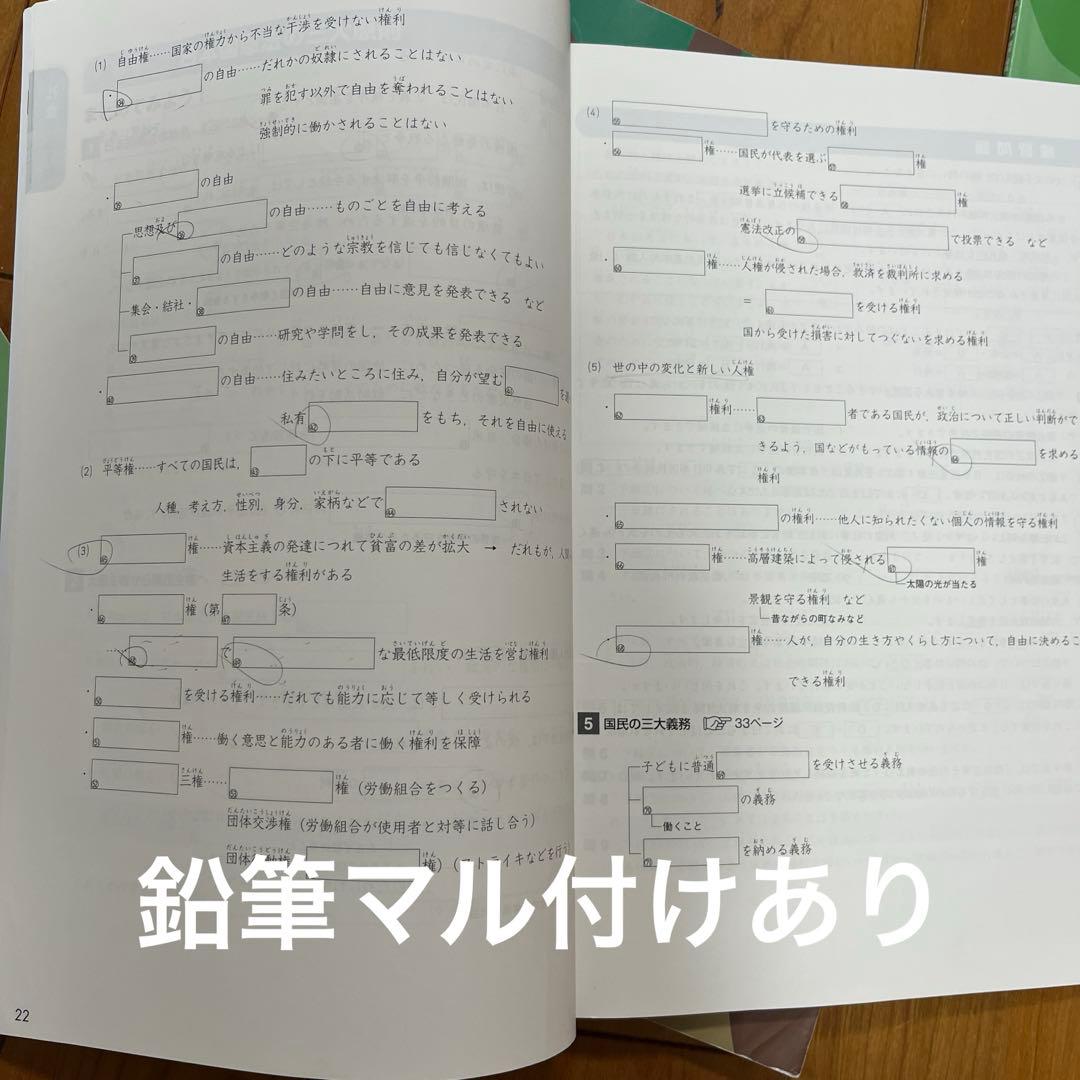 (1) 自由権……国家の権力から不当な干渉を受けない権利
・㉞ の自由……だれかの奴隷にされることはない
罪を犯す以外で自由を奪われることはない
強制的に働かされることはない
㉟ の自由
思想及び㊱ の自由……ものごとを自由に考える
㊲ の自由……どのような宗教を信じても信じなくてもよい
集会・結社・㊳ の自由……自由に意見を発表できる など
㊴ の自由……研究や学問をし，その成果を発表できる
・㊵ の自由……住みたいところに住み，自分が望む㊶ を
私有㊷ をもち，それを自由に使える
(2) 平等権……すべての国民は，㊸ の下に平等である
人種，考え方，性別，身分，家柄などで㊹ されない
(3) ㊺ 権……資本主義の発達につれて貧富の差が拡大 → だれもが，人
生活をする権利がある
・㊻ 権（第㊼ 条）
……㊽ で㊾ な最低限度の生活を営む権利
・㊿ を受ける権利……だれでも能力に応じて等しく受けられる
・51 権……働く意思と能力のある者に働く権利を保障
・52 三権……53 権（労働組合をつくる）
団体交渉権（労働組合が使用者と対等に話し合う）
団体 権）（ストライキなどを行う
22
(4) 55 を守るための権利
・56 権……国民が代表を選ぶ57 権
選挙に立候補できる58 権
憲法改正の59 で投票できる など
・60 権……人権が侵された場合，救済を裁判所に求める
＝ 61 を受ける権利
国から受けた損害に対してつぐないを求める権利
(5) 世の中の変化と新しい人権
・62 権利……63 者である国民が，政治について正しい判断がで
きるよう，国などがもっている情報の64 を求める
権利
・65 の権利……他人に知られたくない個人の情報を守る権利
・66 権……高層建築によって侵される67 権
太陽の光が当たる
景観を守る権利 など
昔ながらの町なみなど
・68 権……人が，自分の生き方やくらし方について，自由に決めるこ
できる権利
5 国民の三大義務 ☞33ページ
子どもに普通69 を受けさせる義務
70 の義務
働くこと
71 を納める義務
鉛筆マル付けあり